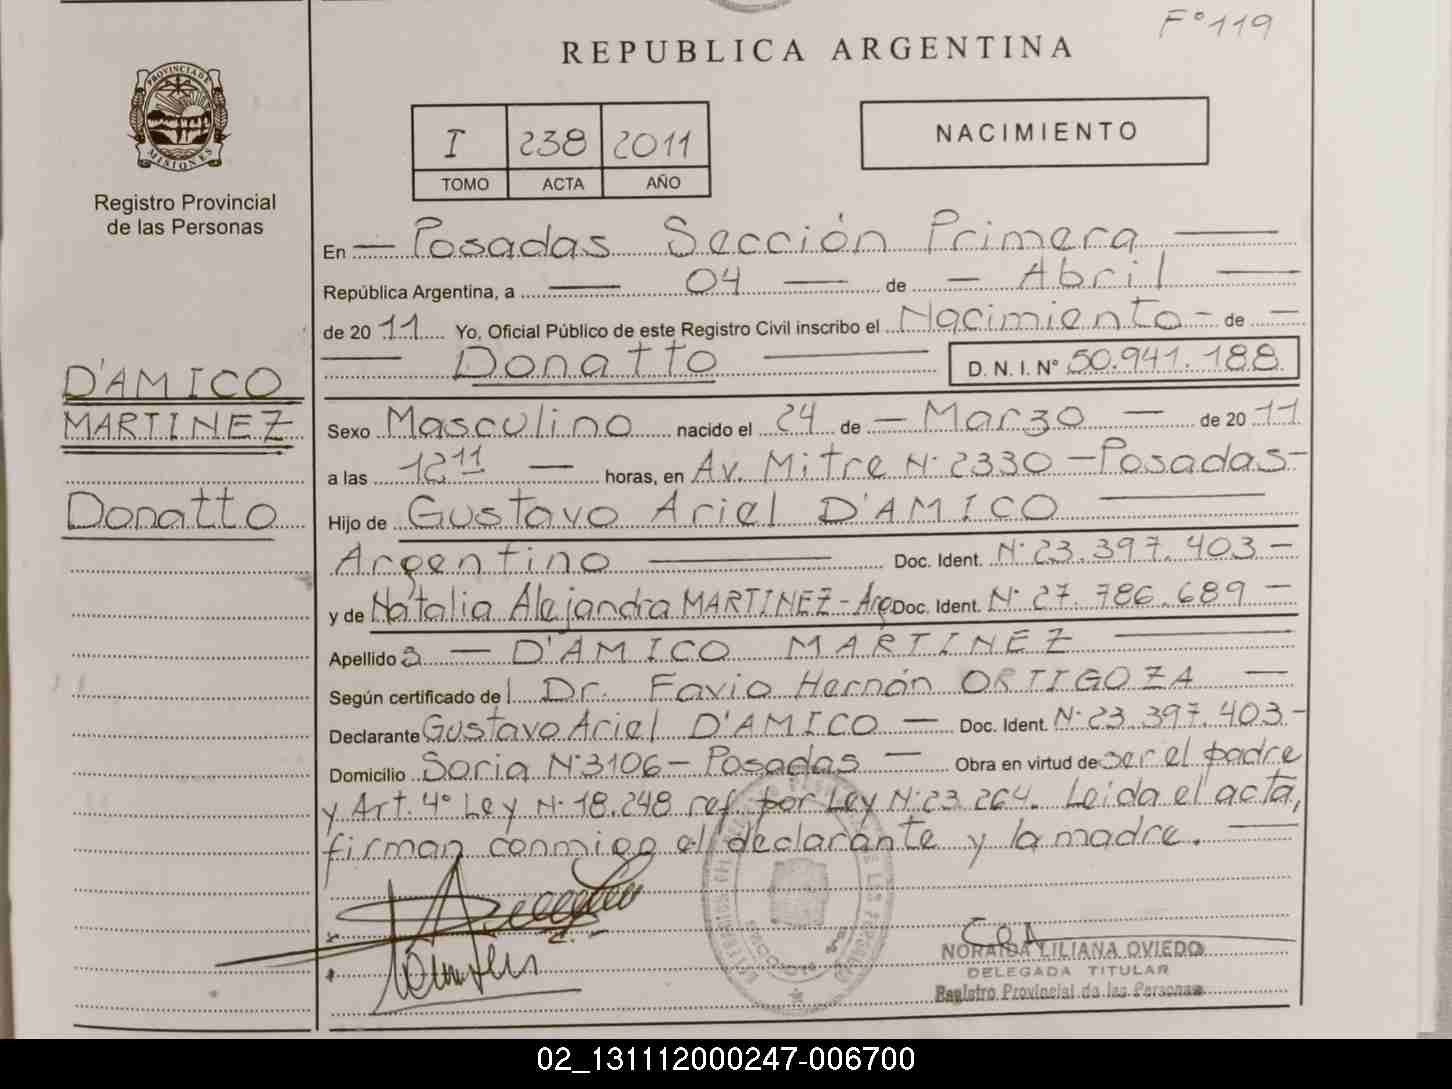 F° 119
REPUBLICA ARGENTINA
PROVINCIA DE
MISIONES
Registro Provincial
de las Personas
I 238 2011
TOMO ACTA AÑO
NACIMIENTO
En — Posadas Sección Primera —
República Argentina, a — 04 — de — Abril —
de 20 11 Yo, Oficial Público de este Registro Civil inscribo el Nacimiento - de —
— Donatto — D. N. I. N° 50.941.188
D'AMICO
MARTINEZ
Donatto
Sexo Masculino nacido el 24 de — Marzo — de 20 11
a las 12 11 — horas, en Av. Mitre N° 2330 - Posadas -
Hijo de Gustavo Ariel D'AMICO —
Argentino — Doc. Ident. N° 23.397.403 -
y de Natalia Alejandra MARTINEZ - Arg Doc. Ident. N° 27.786.689 —
Apellido a — D'AMICO MARTINEZ —
Según certificado del Dr. Favio Hernán ORTIGOZA —
Declarante Gustavo Ariel D'AMICO — Doc. Ident. N° 23.397.403 -
Domicilio Soria N° 3106 - Posadas — Obra en virtud de ser el padre
y Art. 4° Ley N° 18.248 ref. por Ley N° 23.264. Leida el acta,
firman conmigo el declarante y la madre. —
NORAIDA LILIANA OVIEDO
DELEGADA TITULAR
Registro Provincial de las Personas
02_131112000247-006700